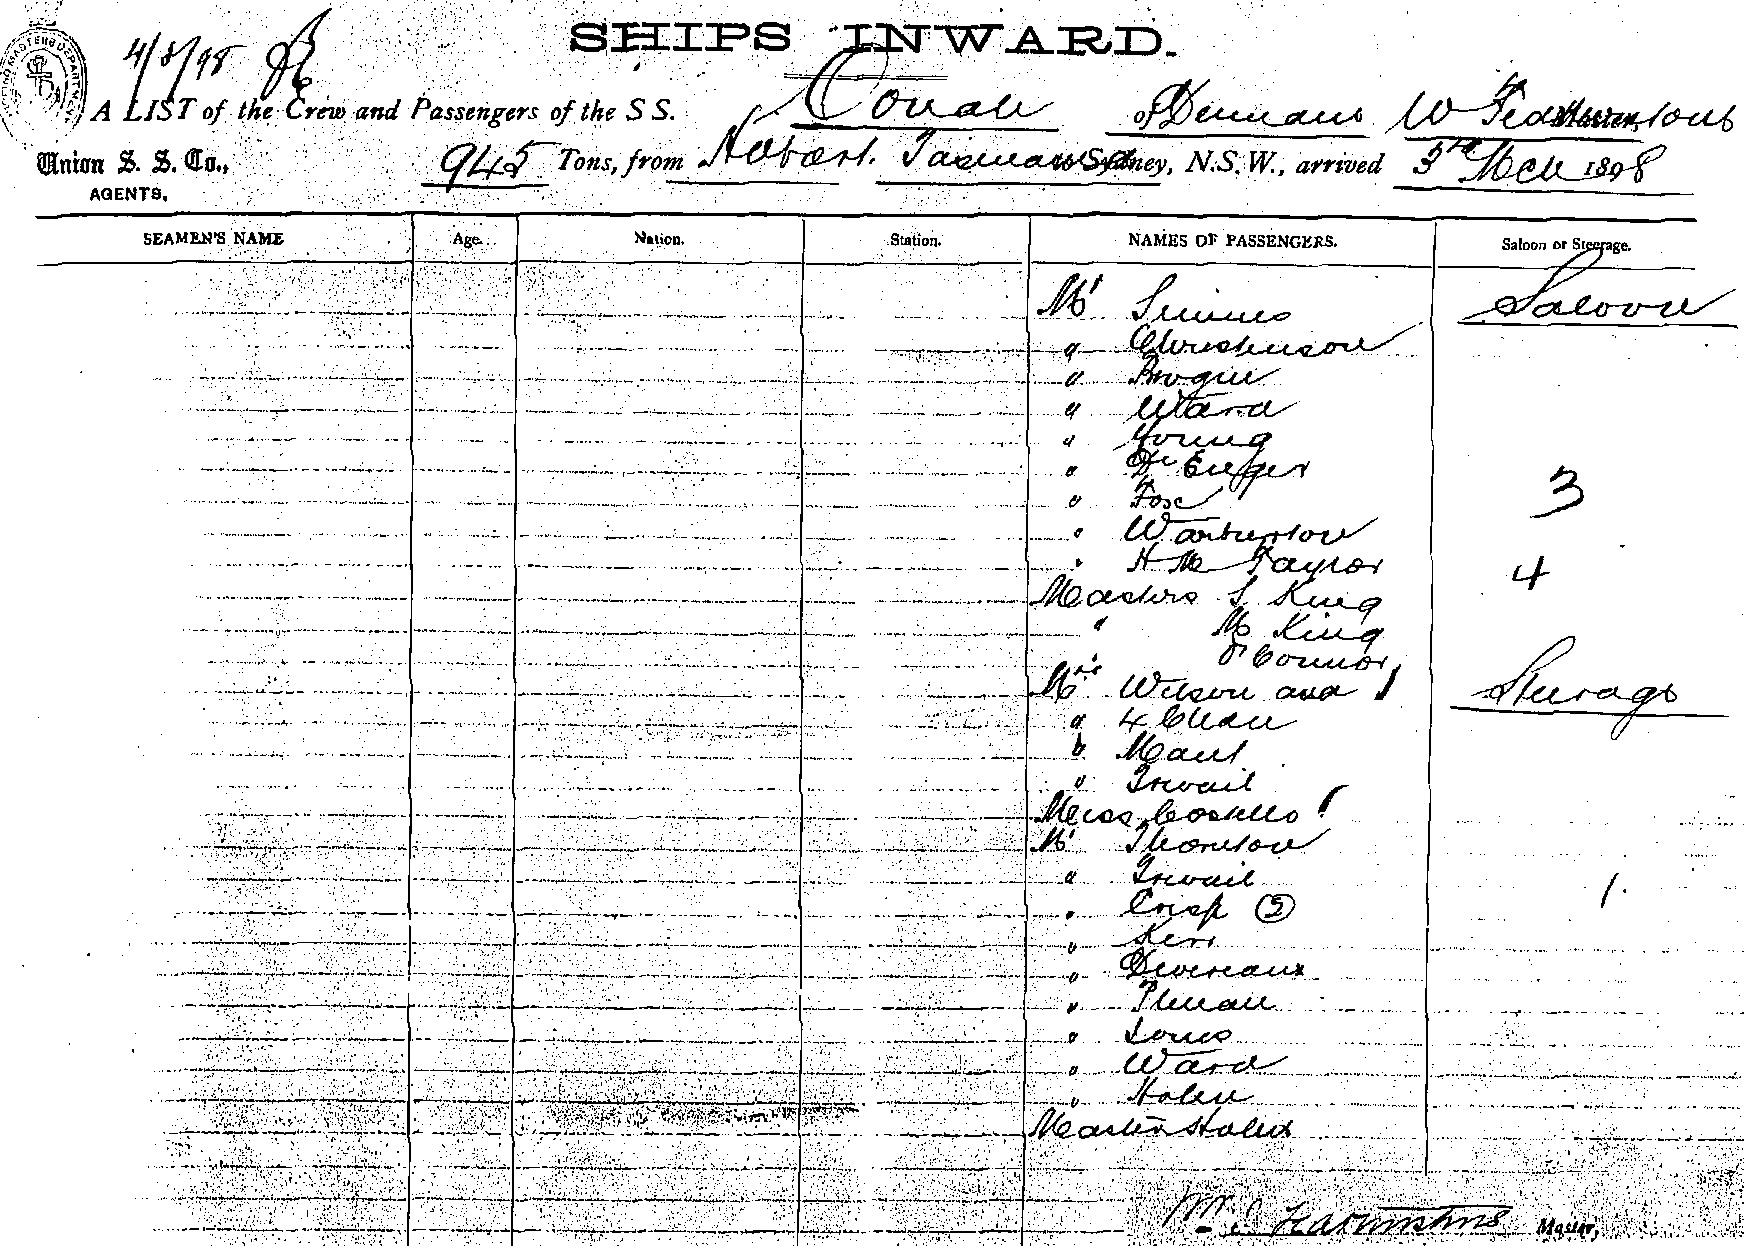 SHIPS INWARD.
4/3/98
A LIST of the Crew and Passengers of the S S. Oonah of Dunedin W Featherstone Master,
Union S. S. Co., 945 Tons, from Hobart. Tasmania to Sydney, N.S.W., arrived 3rd Mch 1898
AGENTS,
SEAMEN'S NAME Age. Nation. Station. NAMES OF PASSENGERS. Saloon or Steerage.
Mr Simms Saloon
" Christenson
" Brogue
" Ward
" Young
" Dr
" Fox 3
" Warburton
" H M Taylor 4
Masters S King
" M King
O'Connor
Mrs Wilson and Steerage
" 4 Chdn
" Maut
" Trevail
Miss Costello
Mr Thornton
" Trevail 1
" Crisp (2)
" Kerr
" Devereaux
"
" Louis
" Ward
" Holen
Master Holen
Wm. Featherstone Master,